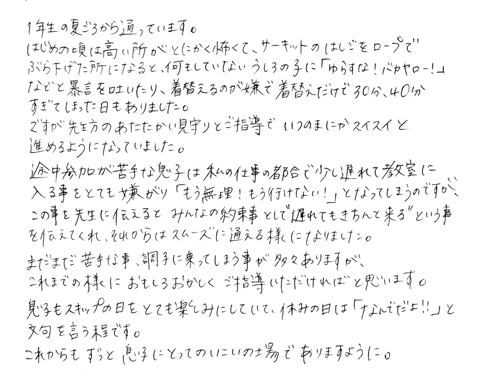 1年生の夏ごろから通っています。
はじめの頃は高い所がとにかく怖くて、サーキットのはしごをロープで
ぶら下げた所になると、何もしていないうしろの子に「ゆらすな！バカヤロー！」
などと暴言を吐いたり、着替えるのが嫌で着替えだけで30分、40分
すぎてしまった日もありました。
ですが先生方のあたたかい見守りとご指導でいつのまにかスイスイと
進めるようになっていました。
途中参加が苦手な息子は私の仕事の都合で少し遅れて教室に
入る事をとても嫌がり「もう無理！もう行けない！」となってしまうのですが、
この事を先生に伝えるとみんなの約束事として"遅れてもきちんと来る"という事
を伝えてくれ、それからはスムーズに通える様になりました。
まだまだ苦手な事、調子に乗ってしまう事が多々ありますが、
これまでの様におもしろおかしくご指導いただければと思います。
息子もスキップの日をとても楽しみにしていて、休みの日は「なんでだよ!!」と
文句を言う程です。
これからもずっと息子にとってのいこいの場でありますように。